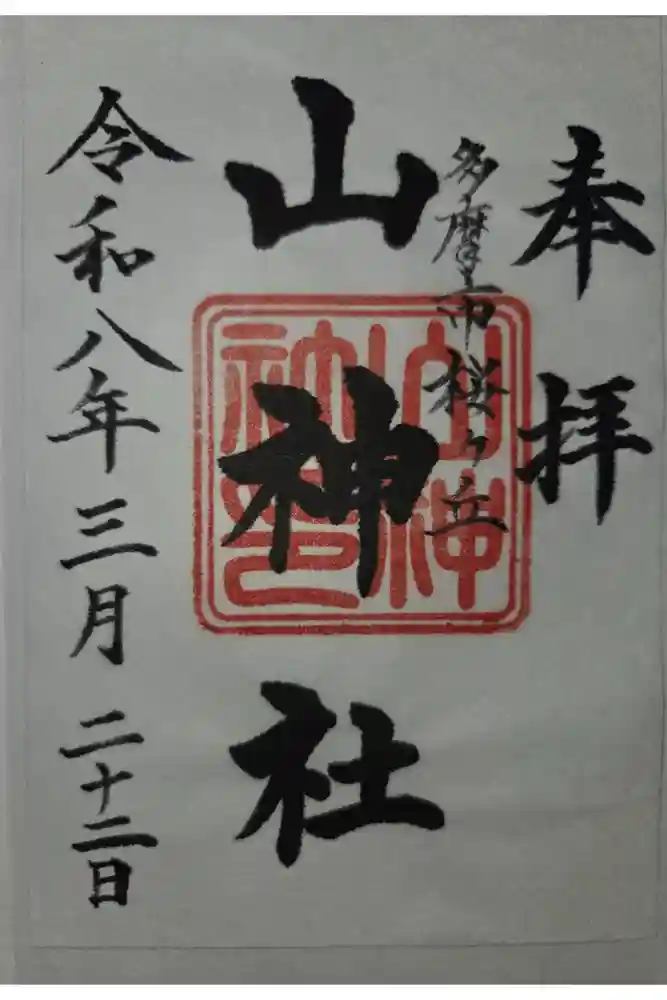 奉拝
多摩市桜ヶ丘
山神社
山神
神印
令和八年三月二十二日